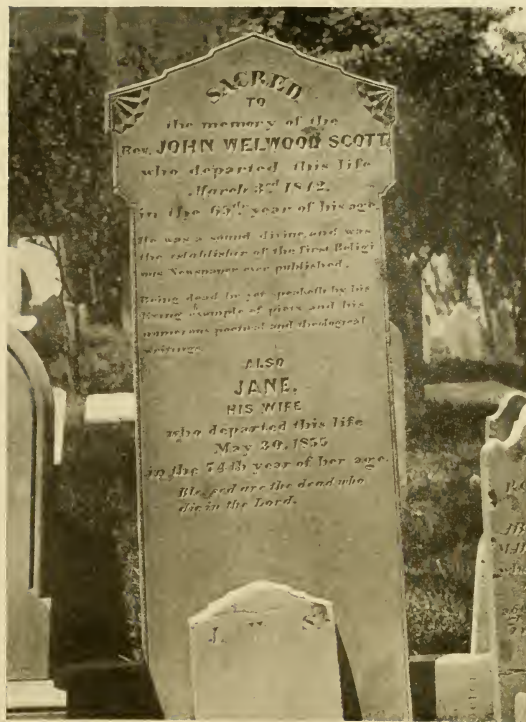 SACRED
TO
the memory of the
Rev. JOHN WELWOOD SCOTT
who departed this life
March 3rd 1842.
in the 65th year of his age.
He was a sound divine, and was
the establisher of the first Religi
ous Newspaper ever published.
Being dead he yet speaketh by his
living example of piety and his
numerous poetical and theological
writings.
ALSO
JANE,
HIS WIFE
who departed this life
May 30, 1855
in the 74th year of her age.
Blessed are the dead who
die in the Lord.
J. W. S.